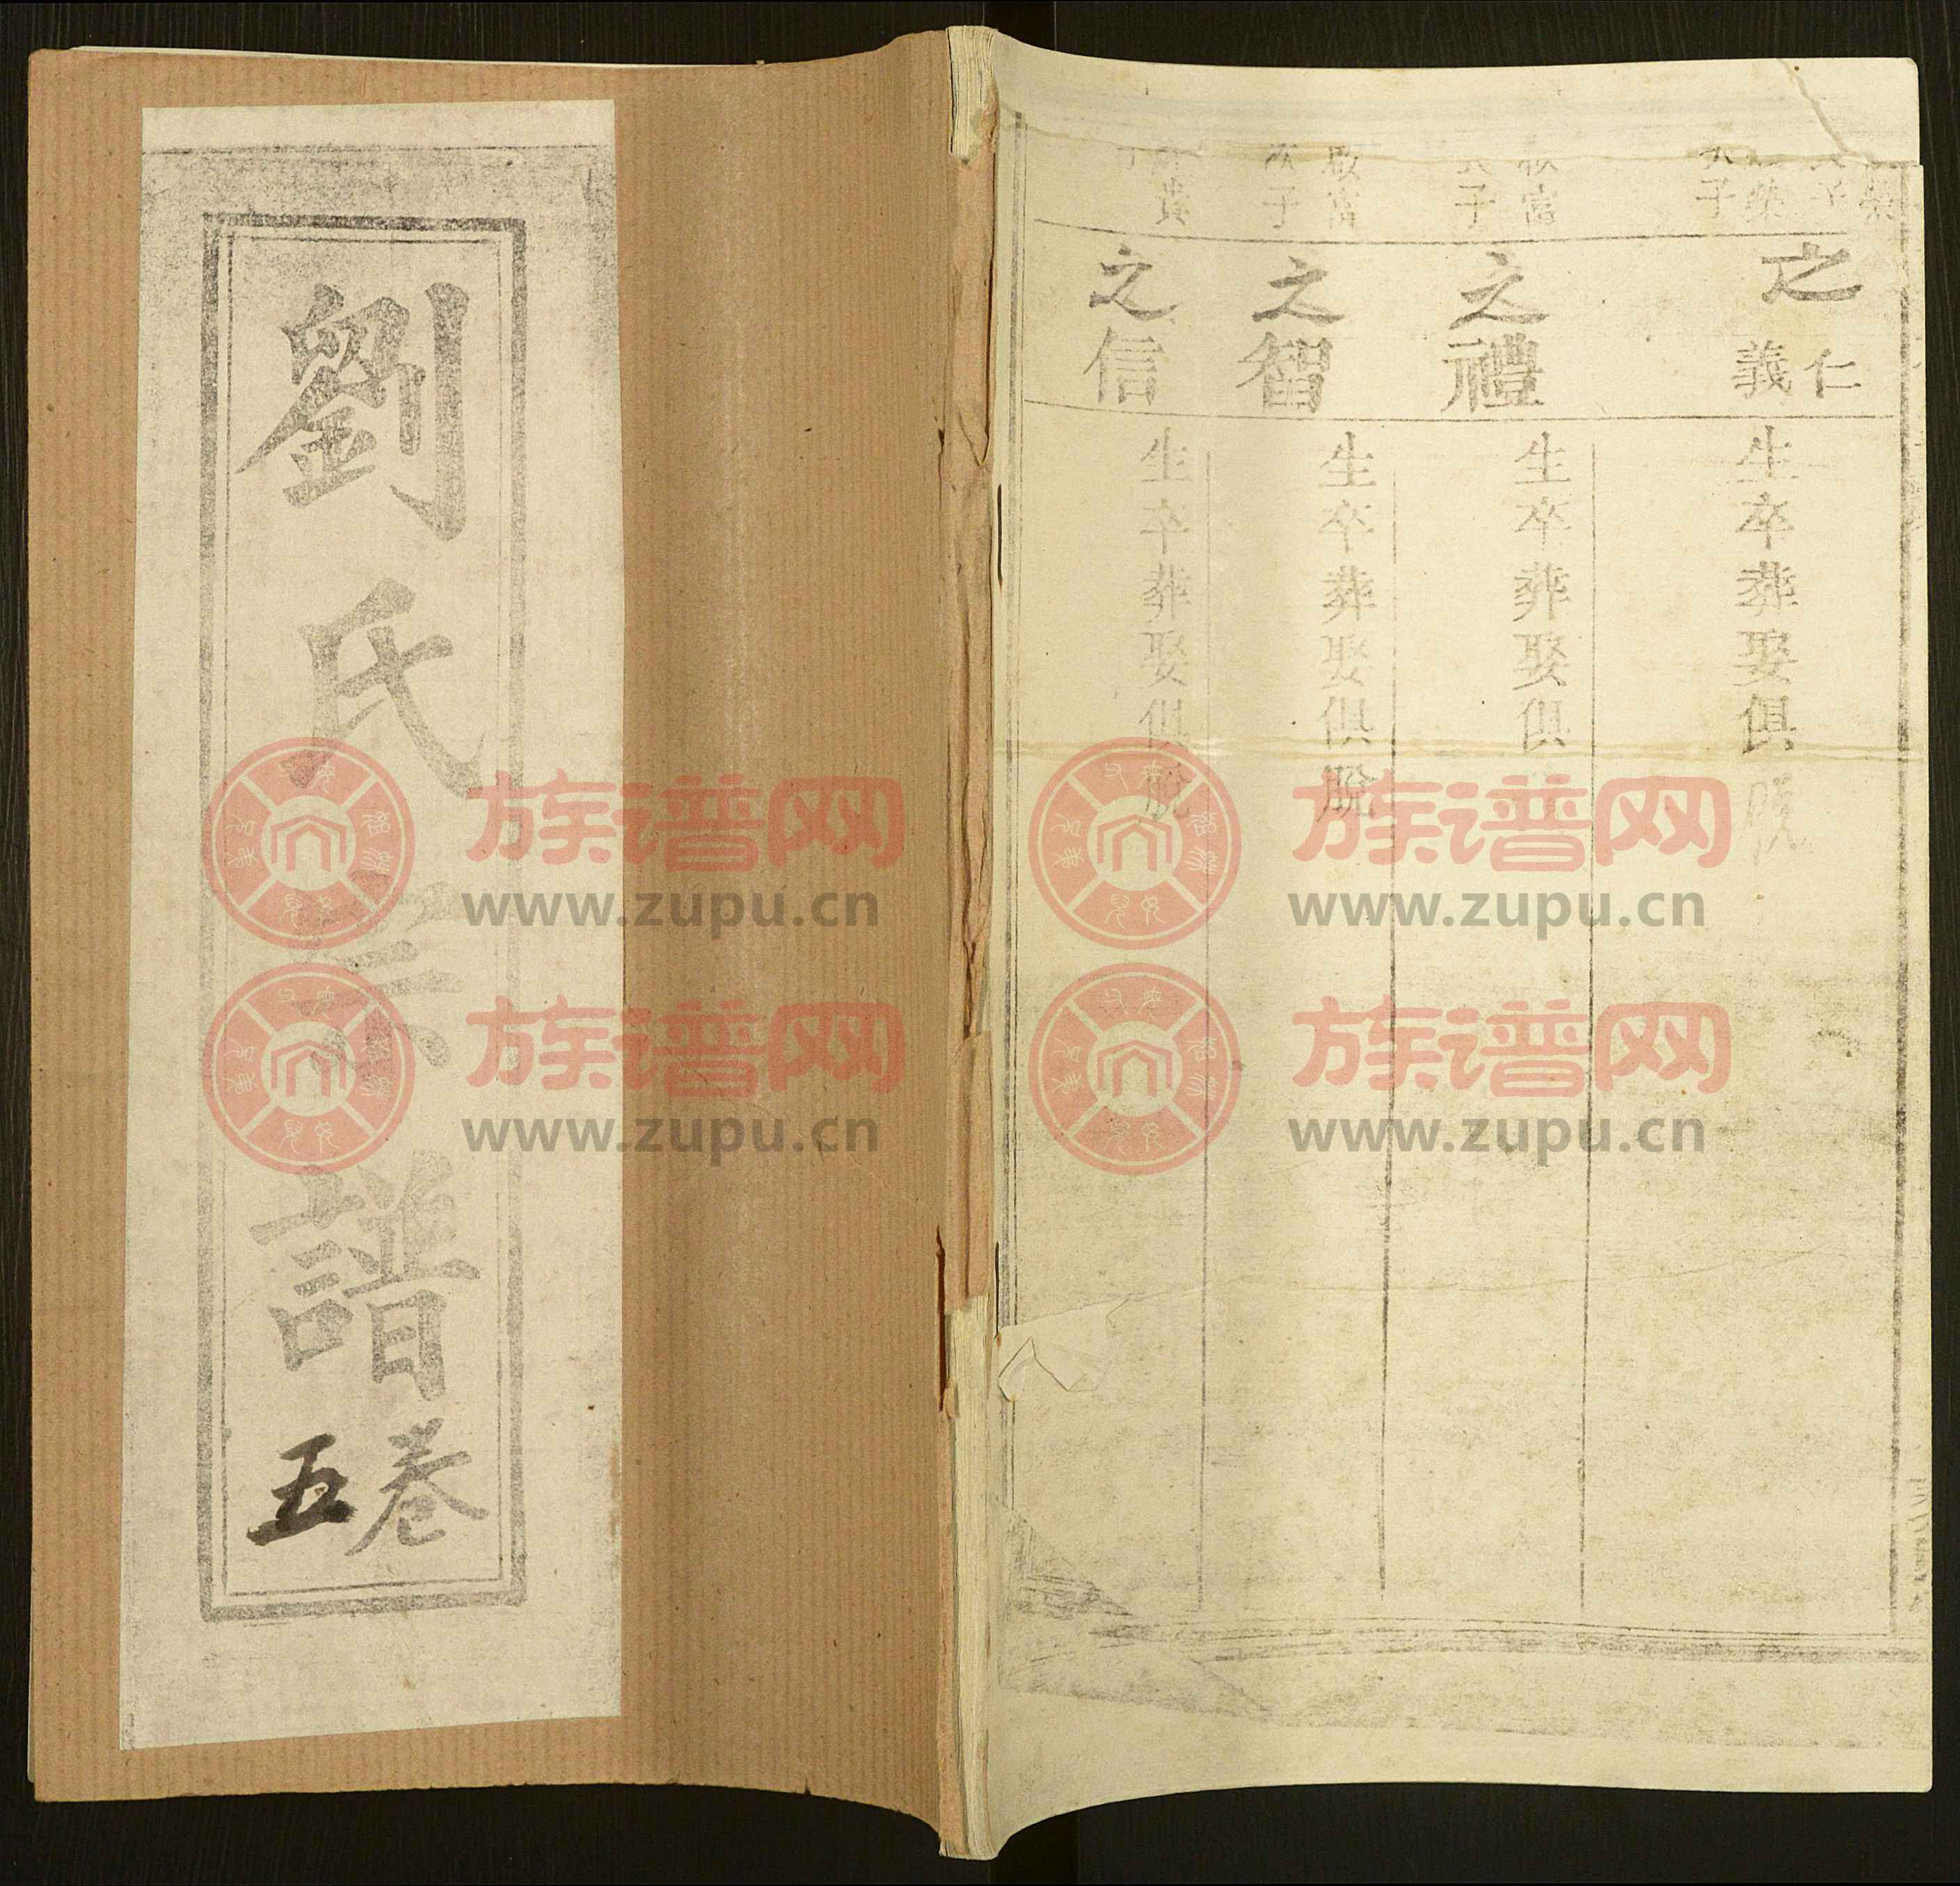 劉氏宗譜
卷五
之仁
義
生卒葬娶俱
之禮
生卒葬娶俱
之智
生卒葬娶俱脫
之信
生卒葬娶俱脫
族谱网
www.zupu.cn
族谱网
www.zupu.cn
族谱网
www.zupu.cn
族谱网
www.zupu.cn